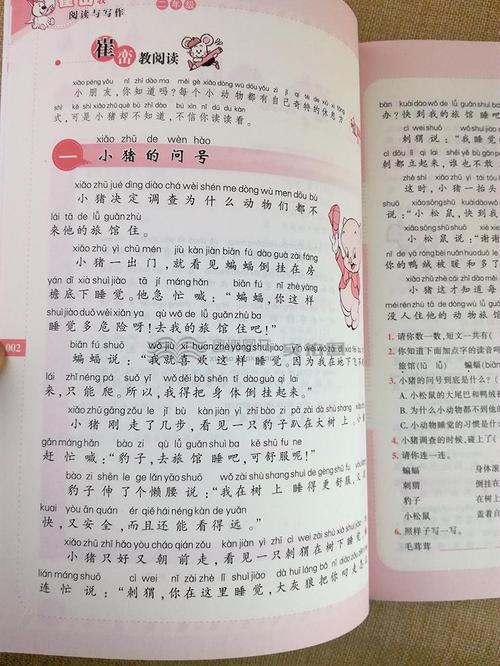 阅读与写作
二年级
崔峦教阅读
xiǎo péng yǒu nǐ zhī dào ma měi gè xiǎo dòng wù dōu yǒu zì jǐ qí tè de xiū xi fāng
小朋友,你知道吗?每个小动物都有自己奇特的休息方
shì kě shì xiǎo zhū què bù zhī dào bú xìn nǐ dú du kàn
式,可是小猪却不知道,不信你读读看。
xiǎo zhū de wèn hào
一 小猪的问号
xiǎo zhū jué dìng diào chá wèi shén me dòng wù men dōu bù
小猪决定调查为什么动物们都不
lái tā de lǚ guǎn zhù
来他的旅馆住。
xiǎo zhū yì chū mén jiù kàn jiàn biān fú dào guà zài fáng
小猪一出门,就看见蝙蝠倒挂在房
yán dǐ xià shuì jiào tā jí máng hǎn biān fú nín zhè yàng
檐底下睡觉。他急忙喊:“蝙蝠,您这样
shuì jiào duō wēi xiǎn ya qù wǒ de lǚ guǎn zhù ba
睡觉多危险呀!去我的旅馆住吧!”
biān fú shuō wǒ jiù xǐ huan zhè yàng shuì jiào yīn wèi wǒ tè bié
蝙蝠说:“我就喜欢这样睡觉。因为我
lái zhǐ néng pá suǒ yǐ wǒ děi bǎ shēn tǐ dào guà qi lai
来,只能爬。所以,我得把身体倒挂起来。”
xiǎo zhū gāng zǒu le jǐ bù kàn jiàn yì zhī bào zi pā zài dà shù shang
小猪刚走了几步,看见一只豹子趴在大树上。
gǎn máng hǎn bào zi qù lǚ guǎn shuì ba kě shū fu ne
赶忙喊:“豹子,去旅馆睡吧,可舒服呢!”
bào zi shēn le gè lǎn yāo shuō wǒ zài shù shang shuì de gèng shū fu
豹子伸了个懒腰说:“我在树上睡得更舒服
kuai yòu ān quán ér qiě hái néng kàn de yuǎn
快,又安全,而且还能看得远。”
xiǎo zhū zhǐ hǎo yòu cháo qián zǒu kàn jiàn yì zhī cì wei zài shuì jiào
小猪只好又朝前走,看见一只刺猬在睡觉
lián máng shuō cì wei nǐ zài zhè lǐ shuì jiào dà huī láng bǎ nǐ diāo zǒu
连忙说:“刺猬,你在这里睡觉,大灰狼把你叼走
002
bàn kuài dào wǒ de lǚ guǎn shuì
办?快到我的旅馆睡
cì wei shuō wǒ
刺猬说:“我
刺都立起来,谁也不敢
这时,小猪一抬头
说:“小松鼠,快到我
小松鼠说:“谢谢
你的鸭绒被暖和多了
小猪这才知道每
没人住他的动物旅馆
1. 请你数一数,短文一共有(
2. 你知道下面加点字的读音吗
旅馆 蝙蝠
3. 小猪的问号到底是什么?(
A. 小松鼠的大尾巴和鸭绒被
B. 为什么小动物都不到他的
C. 小动物睡觉的习惯是什么
4. 小猪调查的时候,碰上了(
5. 请你连一连。
蝙蝠 身体
刺猬 倒挂在
豹子 在树上
小松鼠 盖着自
6. 照样子写一写。
毛茸茸